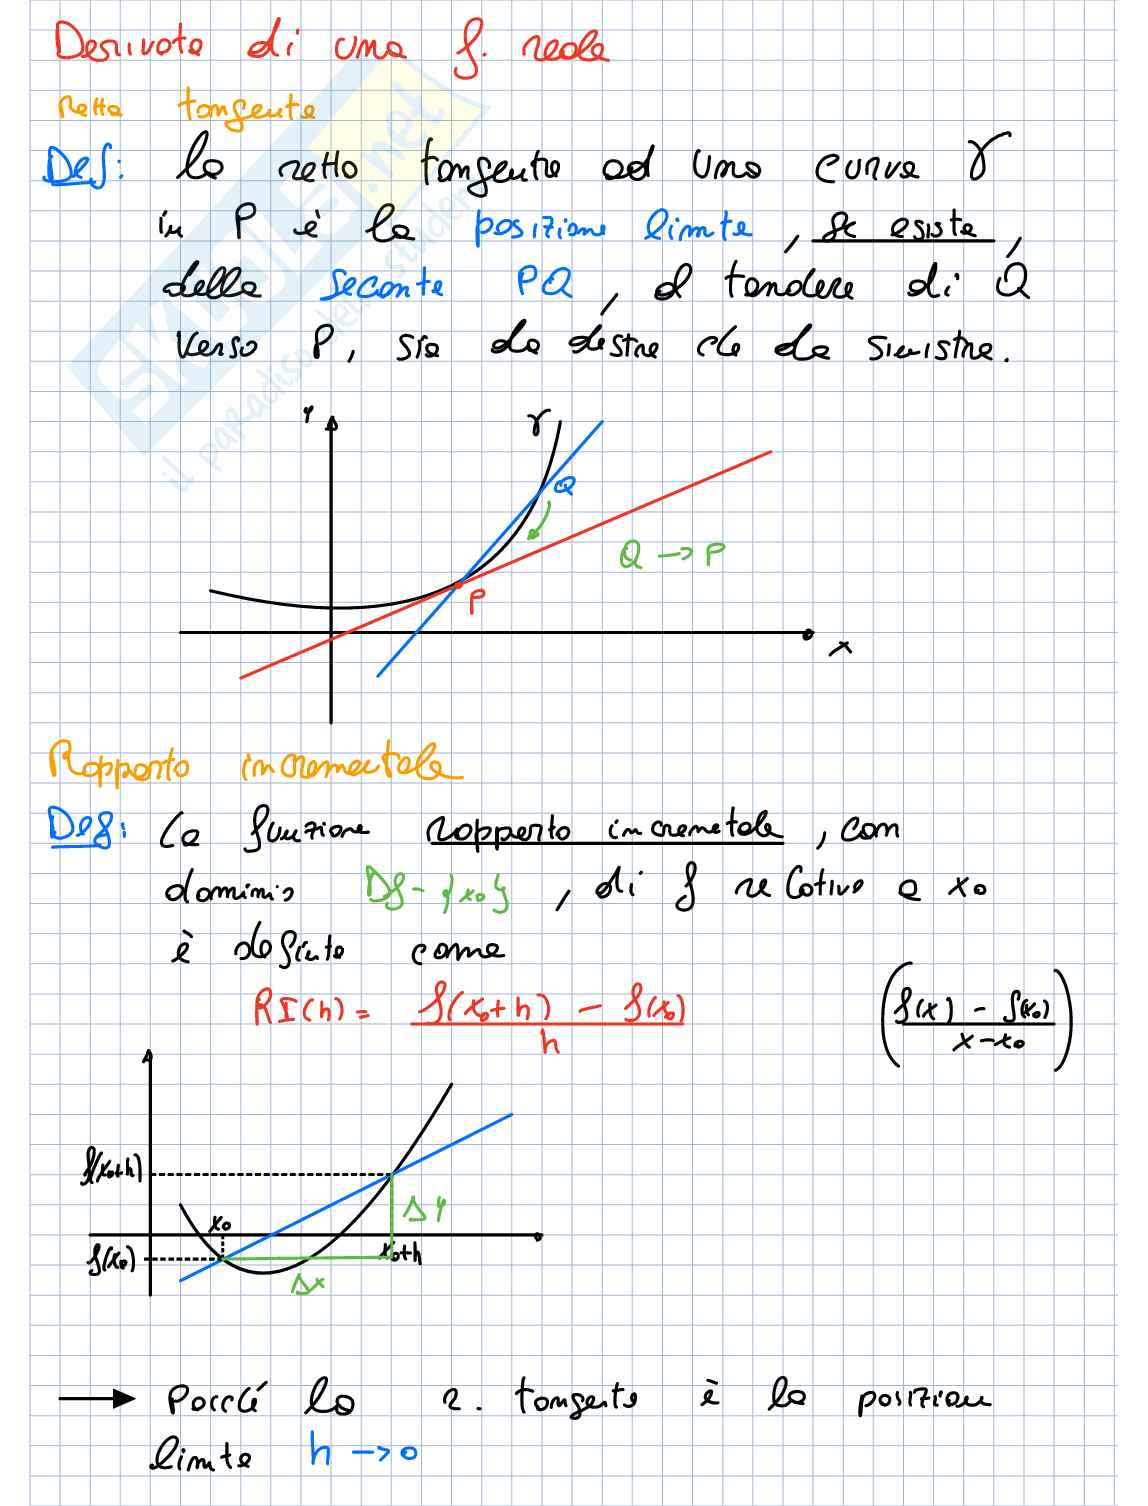 Derivata di una f. reale
Retta tangente
Def: la retta tangente ad una curva γ
in P è la posizione limite, se esiste,
della secante PQ, al tendere di Q
verso P, sia da destra che da sinistra.
y
γ
Q
Q → P
P
x
Rapporto incrementale
Def: La funzione rapporto incremetale, con
dominio Df - {x₀}, di f relativo a x₀
è definita come
RI(h) = f(x₀+h) - f(x₀) / h
(f(x) - f(x₀) / x - x₀)
f(x₀+h)
Δy
x₀
x₀+h
f(x₀)
Δx
→ Poiché la r. tangente è la posizione
limite h → 0
SKUOLA.net
il paradiso dello studente